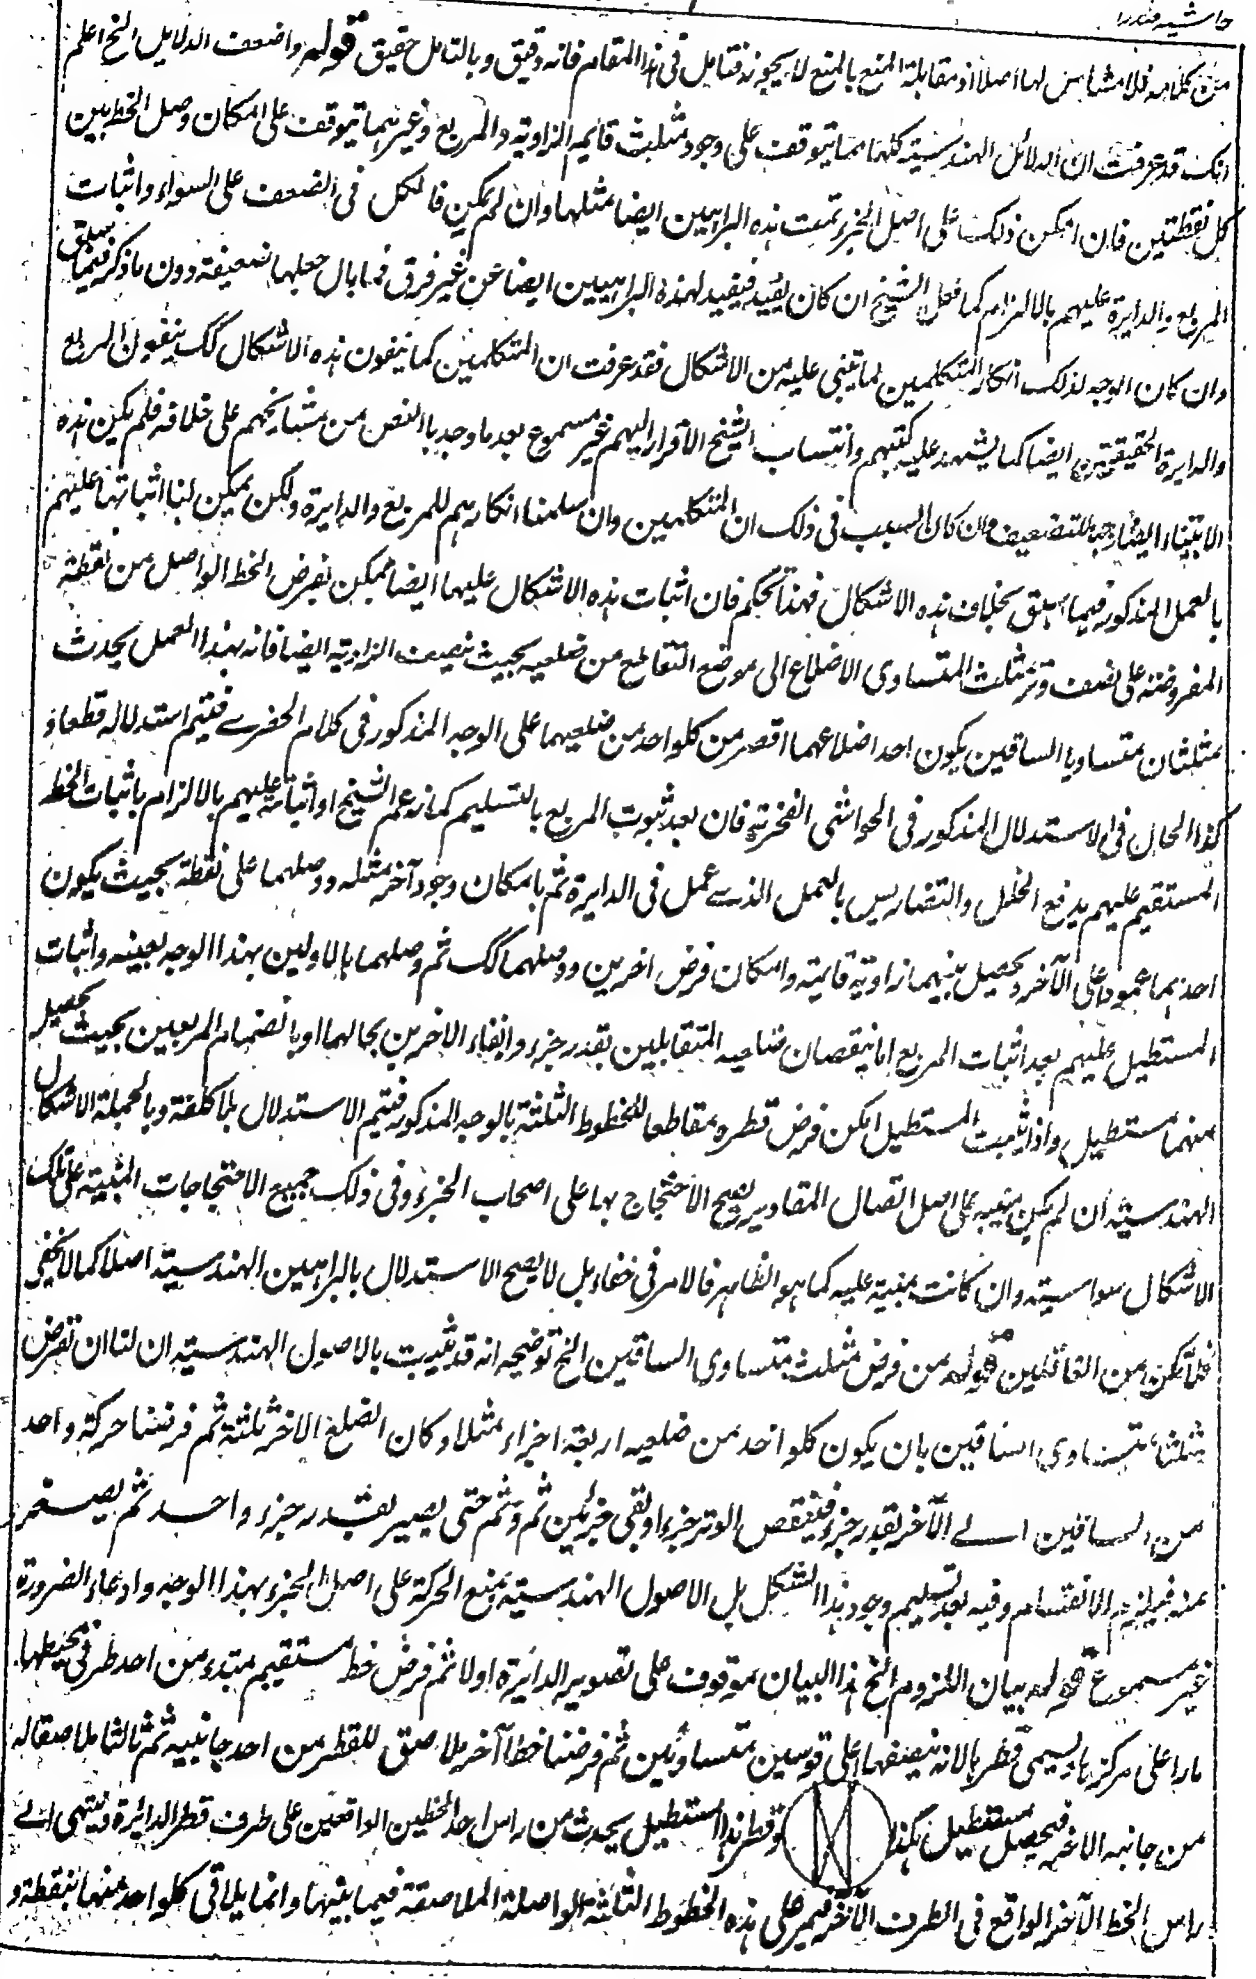 حاشیہ صدرا
من کلامہ فلا مشاہین لہا اصلا اذ مقابلۃ المنع بالمنع لا یجوز فتامل فی ہذا المقام فانہ دقیق و بالتامل حقیق قولہ واضعف الدلایل الخ اعلم
انک قد عرفت ان الدلائل الہندسیۃ کلہا مما یتوقف علی وجود مثلث قایم الزاویۃ والمربع وغیرہما یتوقف علی امکان وصل الخط بین
کل نقطتین فان امکن ذلک علی اصل الجزء تمت ہذہ البراہین ایضا بمثلہا وان لم یمکن فالکل فی الضعف علی السواء واثبات
المربع والدایرۃ علیہم بالالزام کما فعل الشیخ ان کان یفید فیفید لہذہ البراہین ایضا من غیر فرق فما بال جعلہا ضعیفۃ دون ما ذکر فیما سبق
وان کان الوجہ لذلک انکار المتکلمین لما یبتنی علیہ من الاشکال فقد عرفت ان المتکلمین کما ینفون ہذہ الاشکال کک ینفون المربع
والدایرۃ الحقیقیتین ایضا کما یشہد علیہ کتبہم وانتساب الشیخ الاقرار الیہم غیر مسموع بعد ما وجد بالنص من مشایخہم علی خلافہ فلم یکن ہذہ
الابتناء ایضا وجہا للتضعیف وان کان السبب فی ذلک ان المتکلمین وان سلمنا انکارہم للمربع والدایرۃ ولکن یمکن لنا اثباتہما علیہم
بالعمل المذکور فیما سبق بخلاف ہذہ الاشکال فہذا تحکم فان اثبات ہذہ الاشکال علیہا ایضا ممکن بفرض الخط الواصل من نقطۃ
المفروضۃ علی نصف وتر مثلث المتساوی الاضلاع الی موضع التقاطع من ضلعیہ بحیث ینصف الزاویۃ ایضا فانہ بہذا العمل یحدث
مثلثان متساویا الساقین یکون احد اضلاعہما اقصر من کلواحد من ضلعیہما علی الوجہ المذکور فی کلام الحضرے فیتم استدلالہ قطعا و
کذا الحال فی الاستدلال المذکور فی الحواشی الفخریۃ فان بعد ثبوت المربع بالتسلیم کما زعم الشیخ او اثباتہ علیہم بالالزام باثبات الخط
المستقیم علیہم یدفع الخلل والتضاریس بالعمل الذے عمل فی الدایرۃ ثم بامکان وجود آخر مثلہ ووصلہما علی نقطۃ بحیث یکون
احدہما عمودا علی الآخر ویحصل بینہما زاویۃ قایمۃ وامکان فرض اخرین ووصلہما کک ثم وصلہما بالاولین بہذا الوجہ بعینہ واثبات
المستطیل علیہم بعد اثبات المربع اما بنقصان ضلعیہ المتقابلین بقدر جزء وابقاء الاخرین بحالہما او بانضمام المربعین بحیث یحصل
منہما مستطیل واذا ثبت المستطیل امکن فرض قطرہ مقاطعا للخطوط الثلثۃ بالوجہ المذکور فیتم الاستدلال بلا کلفۃ وبالجملۃ الاشکال
الہندسیۃ ان لم یکن مبنیۃ علی اصل اتصال المقادیر یصح الاحتجاج بہا علی اصحاب الجزء وفی ذلک جمیع الاحتجاجات المبنیۃ علی تلک
الاشکال سواسیۃ وان کانت مبنیۃ علیہ کما ہو الظاہر فالامر فی خفاء بل لا یصح الاستدلال بالبراہین الہندسیۃ اصلا کما لا یخفی
فلا تکن من الغافلین قولہ من فرض مثلث متساوی الساقین الخ توضیحہ انہ قد ثبت بالاصول الہندسیۃ ان لنا ان نفرض
مثلثا متساوی الساقین بان یکون کلواحد من ضلعیہ اربعۃ اجزاء مثلا وکان الضلع الاخر ثلثۃ ثم فرضنا حرکۃ واحد
من الساقین الے الآخر بقدر جزء فینقص الوتر جزءا وبقی جزئین ثم وثم حتی یصیر بقدر جزء واحد ثم یصیر اصغر
منہ فیلزم الانقسام وفیہ بعد تسلیم وجود ہذا الشکل بل الاصول الہندسیۃ یمنع الحرکۃ علی اصل الجزء بہذا الوجہ وادعاء الضرورۃ
غیر مسموع قولہ بیان اللزوم الخ ہذا البیان موقوف علی تصویر الدایرۃ اولا ثم فرض خط مستقیم مبتدء من احد طرفی محیطہا
مارا علی مرکزہا ویسمی قطرہا لانہ ینصفہا علی قوسین متساویین ثم فرضنا خطا آخر ملاصق للقطر من احد جانبیہ ثم ثالثا ملاصقا لہ
من جانبہ الاخر فیحصل مستطیل ہکذا وقطر ہذا المستطیل یحدث من راس احد الخطین الواقعین علی طرف قطر الدائرۃ وینتہی الے
راس الخط الآخر الواقع فی الطرف الآخر فیمر علی ہذہ الخطوط الثلثۃ الواصلۃ الملاصقۃ فیما بینہا وانما یلاقی کلواحد منہا بنقطۃ و